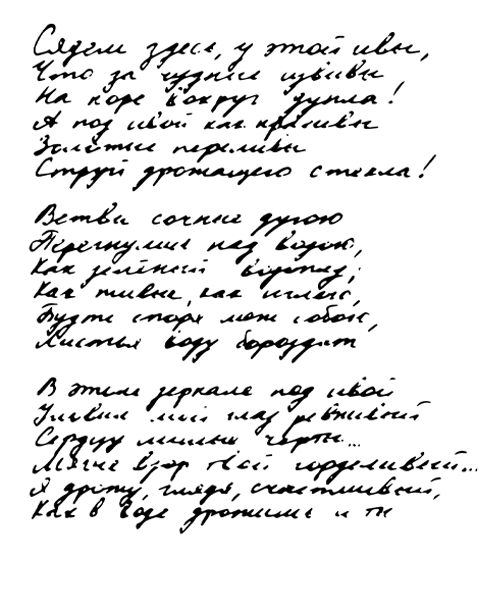 Сядем здесь, у этой ивы,
Что за чудные извивы
На коре вокруг дупла!
А под ивой как красивы
Золотые переливы
Струй дрожащего стекла!

Ветви сочные дугою
Перегнулись над водою,
Как зелёный водопад;
Как живые, как иглою,
Будто споря меж собою,
Листья воду бороздят

В этом зеркале под ивой
Уловил мой глаз ревнивый
Сердцу милые черты...
Мягче взор твой горделивый...
Я дрожу, глядя, счастливый,
Как в воде дрожишь и ты